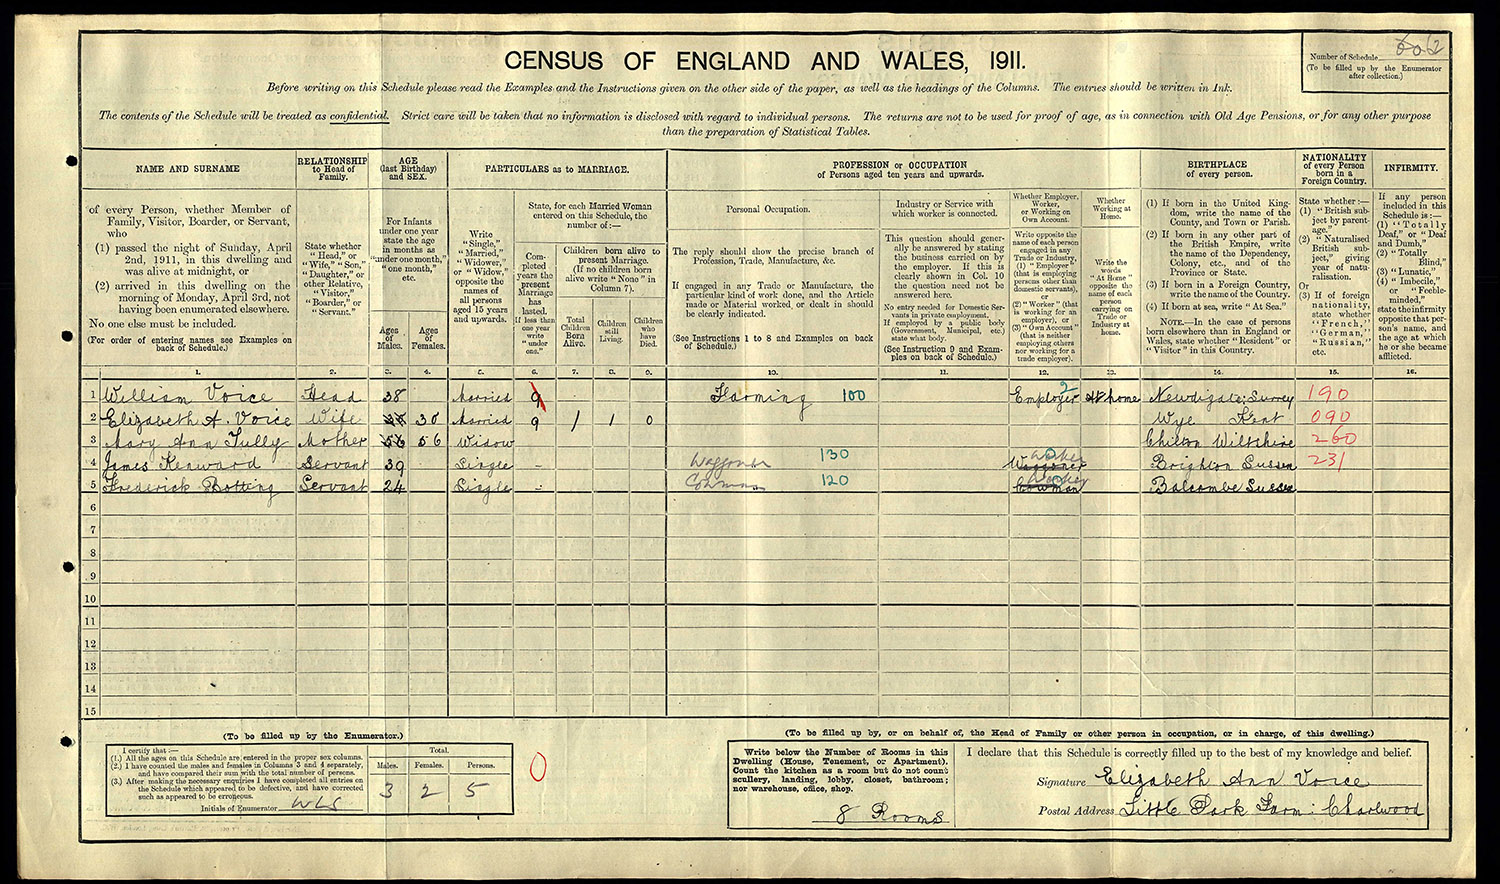 CENSUS OF ENGLAND AND WALES, 1911.
Number of Schedule 62
(To be filled up by the Enumerator
after collection.)
Before writing on this Schedule please read the Examples and the Instructions given on the other side of the paper, as well as the headings of the Columns. The entries should be written in Ink.
The contents of the Schedule will be treated as confidential. Strict care will be taken that no information is disclosed with regard to individual persons. The returns are not to be used for proof of age, as in connection with Old Age Pensions, or for any other purpose
than the preparation of Statistical Tables.
NAME AND SURNAME
of every Person, whether Member of
Family, Visitor, Boarder, or Servant,
who
(1) passed the night of Sunday, April
2nd, 1911, in this dwelling and
was alive at midnight, or
(2) arrived in this dwelling on the
morning of Monday, April 3rd, not
having been enumerated elsewhere.
No one else must be included.
(For order of entering names see Examples on
back of Schedule.)
RELATIONSHIP
to Head of
Family.
State whether
"Head," or
"Wife," "Son,"
"Daughter," or
other Relative,
"Visitor,"
"Boarder," or
"Servant."
AGE
(last Birthday)
and SEX.
For Infants
under one year
state the age
in months as
"under one month,"
"one month,"
etc.
Ages
of
Males.
Ages
of
Females.
PARTICULARS as to MARRIAGE.
Write
"Single,"
"Married,"
"Widower,"
or "Widow,"
opposite the
names of
all persons
aged 15 years
and upwards.
State, for each Married Woman
entered on this Schedule, the
number of:—
Com-
pleted
years the
present
Marriage
has
lasted.
If less than
one year
write
"under
one."
Children born alive to
present Marriage.
(If no children born
alive write "None" in
Column 7).
Total
Children
Born
Alive.
Children
still
Living.
Children
who
have
Died.
PROFESSION or OCCUPATION
of Persons aged ten years and upwards.
Personal Occupation.
The reply should show the precise branch of
Profession, Trade, Manufacture, &c.
If engaged in any Trade or Manufacture, the
particular kind of work done, and the Article
made or Material worked or dealt in should
be clearly indicated.
(See Instructions 1 to 8 and Examples on back
of Schedule.)
Industry or Service with
which worker is connected.
This question should gener-
ally be answered by stating
the business carried on by
the employer. If this is
clearly shown in Col. 10
the question need not be
answered here.
No entry needed for Domestic Ser-
vants in private employment.
If employed by a public body
(Government, Municipal, etc.)
state what body.
(See Instruction 9 and Exam-
ples on back of Schedule.)
Whether Employer,
Worker,
or Working on
Own Account.
Write opposite the
name of each person
engaged in any
Trade or Industry,
(1) "Employer"
(that is employing
persons other than
domestic servants),
or
(2) "Worker" (that
is working for an
employer), or
(3) "Own Account"
(that is neither
employing others
nor working for a
trade employer).
Whether
Working at
Home.
Write the
words
"At Home"
opposite the
name of each
person
carrying on
Trade or
Industry at
home.
BIRTHPLACE
of every person.
(1) If born in the United King-
dom, write the name of the
County, and Town or Parish.
(2) If born in any other part of
the British Empire, write
the name of the Dependency,
Colony, etc., and of the
Province or State.
(3) If born in a Foreign Country,
write the name of the Country.
(4) If born at sea, write "At Sea."
NOTE.—In the case of persons
born elsewhere than in England or
Wales, state whether "Resident" or
"Visitor" in this Country.
NATIONALITY
of every Person
born in a
Foreign Country.
State whether:—
(1) "British sub-
ject by parent-
age."
(2) "Naturalised
British sub-
ject," giving
year of natu-
ralisation.
Or
(3) If of foreign
nationality,
state whether
"French,"
"German,"
"Russian,"
etc.
INFIRMITY.
If any person
included in this
Schedule is:—
(1) "Totally
Deaf," or "Deaf
and Dumb,"
(2) "Totally
Blind,"
(3) "Lunatic,"
(4) "Imbecile,"
or "Feeble-
minded,"
state the infirmity
opposite that per-
son's name, and
the age at which
he or she became
afflicted.
1. 2. 3. 4. 5. 6. 7. 8. 9. 10. 11. 12. 13. 14. 15. 16.
1 William Voice Head 38 Married 9 Farming 100 Employer 2 At home Newdigate: Surrey 190
2 Elizabeth A. Voice Wife 38 Married 9 1 1 0 Wye Kent 090
3 Mary Ann Tully Mother 56 56 Widow Chilton Wiltshire 260
4 James Kenward Servant 39 Single - Waggoner 130 Waggoner Worker Brighton Sussex 231
5 Frederick Botting Servant 24 Single - Cowman 120 Cowman Worker Balcombe Sussex
6
7
8
9
10
11
12
13
14
15
(To be filled up by the Enumerator.)
I certify that:—
(1.) All the ages on this Schedule are entered in the proper sex columns.
(2.) I have counted the males and females in Columns 3 and 4 separately,
and have compared their sum with the total number of persons.
(3.) After making the necessary enquiries I have completed all entries on
the Schedule which appeared to be defective, and have corrected
such as appeared to be erroneous.
Initials of Enumerator WLS
Total.
Males. Females. Persons.
3 2 5
0
(To be filled up by, or on behalf of, the Head of Family or other person in occupation, or in charge, of this dwelling.)
Write below the Number of Rooms in this
Dwelling (House, Tenement, or Apartment).
Count the kitchen as a room but do not count
scullery, landing, lobby, closet, bathroom;
nor warehouse, office, shop.
8 Rooms
I declare that this Schedule is correctly filled up to the best of my knowledge and belief.
Signature Elizabeth Ann Voice
Postal Address Little Park Farm: Charlwood